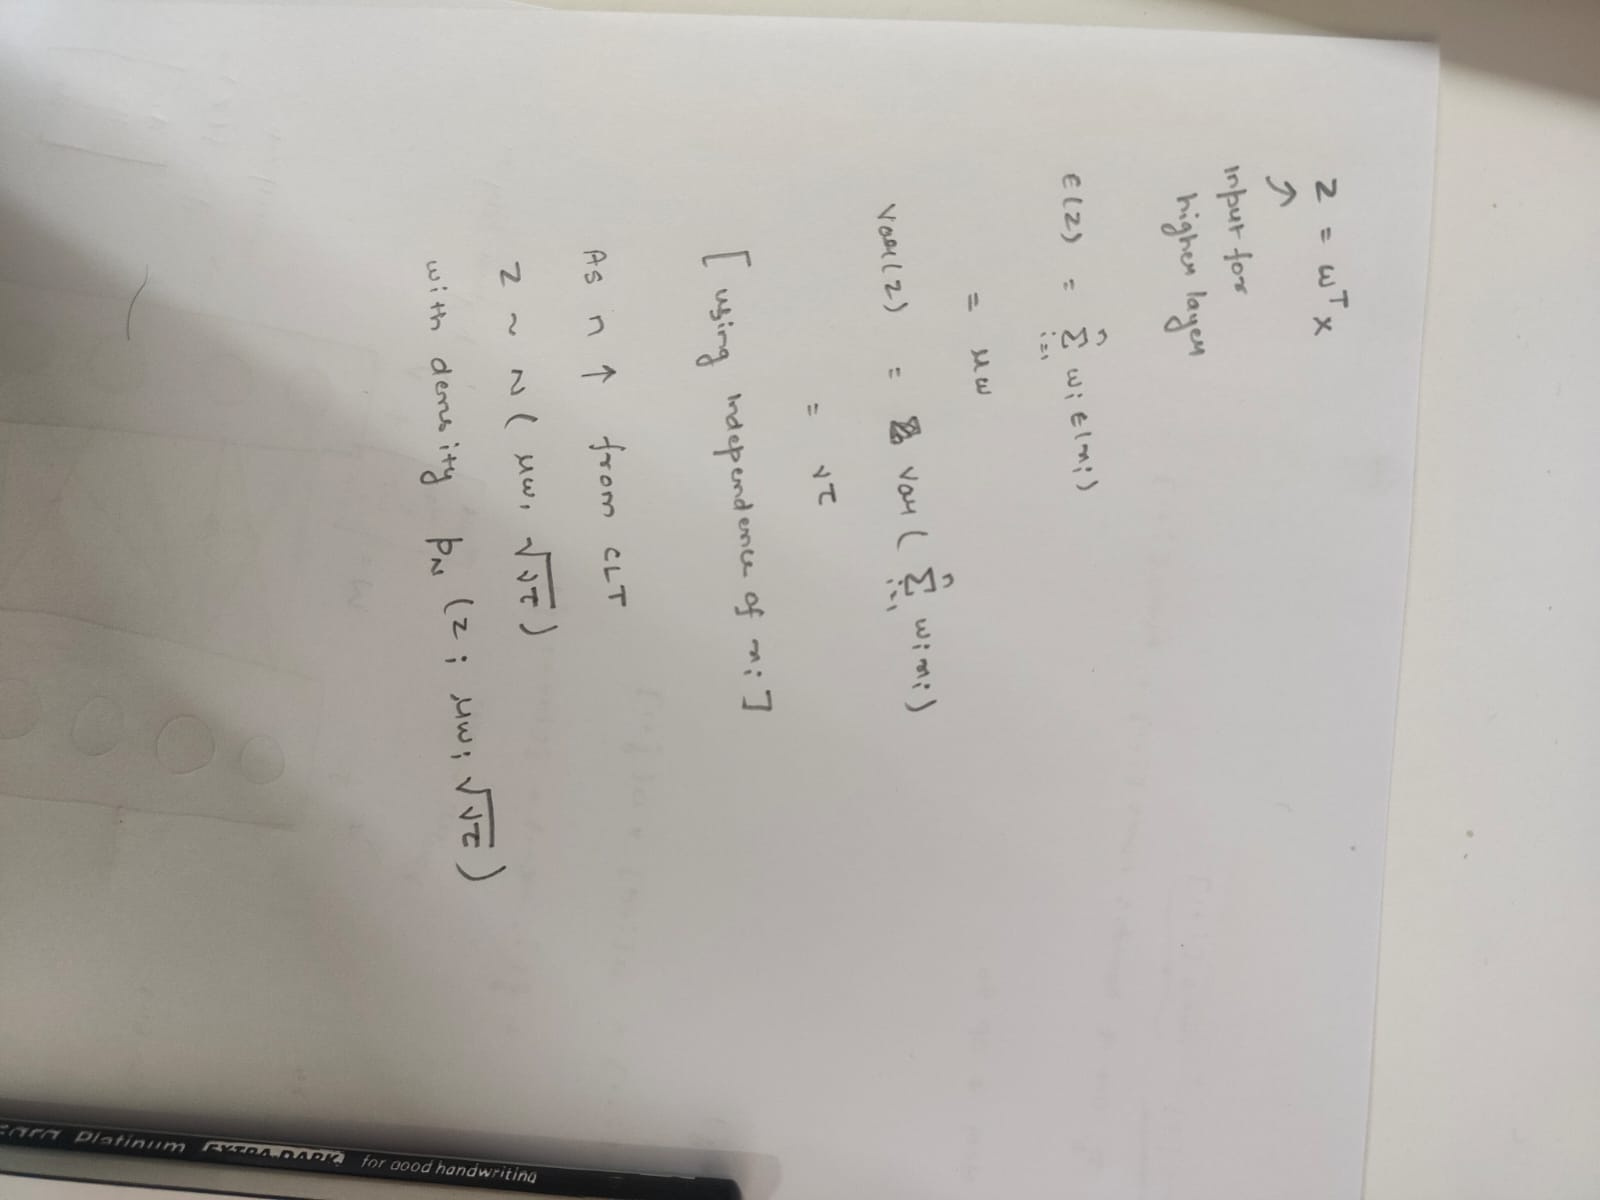 z = wᵀx
↗
input for
higher layer
E(z) = Σⁿᵢ₌₁ wᵢ E(xᵢ)
= μω
Var(z) = Var( Σⁿᵢ₌₁ wᵢ xᵢ )
= ντ
[ using independence of xᵢ ]
As n ↑ from CLT
z ~ N( μω, √ντ )
with density pN (z; μω, √ντ )
Platinum EXTRA DARK for good handwriting